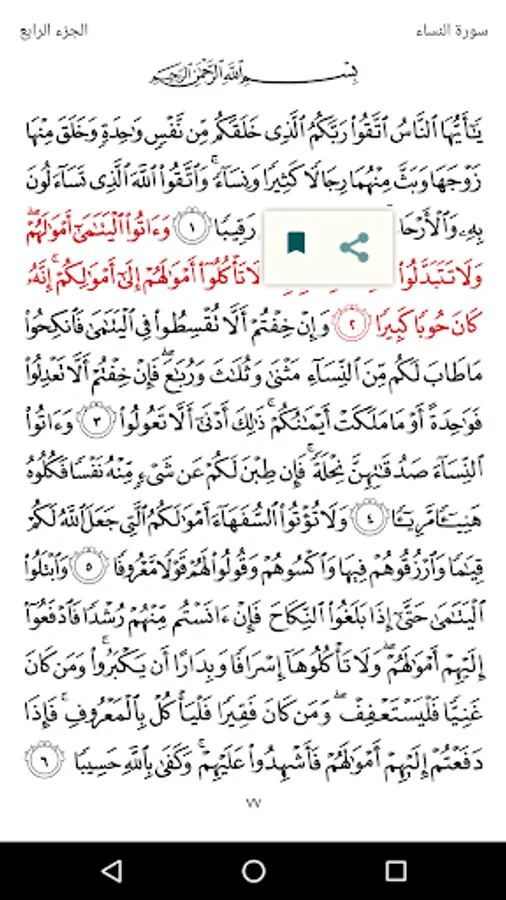 سورة النساء
الجزء الرابع
بِسْمِ اللَّهِ الرَّحْمَٰنِ الرَّحِيمِ
يَٰٓأَيُّهَا ٱلنَّاسُ ٱتَّقُوا۟ رَبَّكُمُ ٱلَّذِى خَلَقَكُم مِّن نَّفْسٍ وَٰحِدَةٍ وَخَلَقَ مِنْهَا
زَوْجَهَا وَبَثَّ مِنْهُمَا رِجَالًا كَثِيرًا وَنِسَآءً ۚ وَٱتَّقُوا۟ ٱللَّهَ ٱلَّذِى تَسَآءَلُونَ
بِهِۦ وَٱلْأَرْحَا رَقِيبًا ١ وَءَاتُوا۟ ٱلْيَتَٰمَىٰٓ أَمْوَٰلَهُمْ ۖ
وَلَا تَتَبَدَّلُوا۟ لَا تَأْكُلُوٓا۟ أَمْوَٰلَهُمْ إِلَىٰٓ أَمْوَٰلِكُمْ ۚ إِنَّهُۥ
كَانَ حُوبًا كَبِيرًا ٢ وَإِنْ خِفْتُمْ أَلَّا تُقْسِطُوا۟ فِى ٱلْيَتَٰمَىٰ فَٱنكِحُوا۟
مَا طَابَ لَكُم مِّنَ ٱلنِّسَآءِ مَثْنَىٰ وَثُلَٰثَ وَرُبَٰعَ ۖ فَإِنْ خِفْتُمْ أَلَّا تَعْدِلُوا۟
فَوَٰحِدَةً أَوْ مَا مَلَكَتْ أَيْمَٰنُكُمْ ۚ ذَٰلِكَ أَدْنَىٰٓ أَلَّا تَعُولُوا۟ ٣ وَءَاتُوا۟
ٱلنِّسَآءَ صَدُقَٰتِهِنَّ نِحْلَةً ۚ فَإِن طِبْنَ لَكُمْ عَن شَىْءٍ مِّنْهُ نَفْسًا فَكُلُوهُ
هَنِيٓـًٔا مَّرِيٓـًٔا ٤ وَلَا تُؤْتُوا۟ ٱلسُّفَهَآءَ أَمْوَٰلَكُمُ ٱلَّتِى جَعَلَ ٱللَّهُ لَكُمْ
قِيَٰمًا وَٱرْزُقُوهُمْ فِيهَا وَٱكْسُوهُمْ وَقُولُوا۟ لَهُمْ قَوْلًا مَّعْرُوفًا ٥ وَٱبْتَلُوا۟
ٱلْيَتَٰمَىٰ حَتَّىٰٓ إِذَا بَلَغُوا۟ ٱلنِّكَاحَ فَإِنْ ءَانَسْتُم مِّنْهُمْ رُشْدًا فَٱدْفَعُوٓا۟
إِلَيْهِمْ أَمْوَٰلَهُمْ ۖ وَلَا تَأْكُلُوهَآ إِسْرَافًا وَبِدَارًا أَن يَكْبَرُوا۟ ۚ وَمَن كَانَ
غَنِيًّا فَلْيَسْتَعْفِفْ ۖ وَمَن كَانَ فَقِيرًا فَلْيَأْكُلْ بِٱلْمَعْرُوفِ ۚ فَإِذَا
دَفَعْتُمْ إِلَيْهِمْ أَمْوَٰلَهُمْ فَأَشْهِدُوا۟ عَلَيْهِمْ ۚ وَكَفَىٰ بِٱللَّهِ حَسِيبًا ٦
٧٧